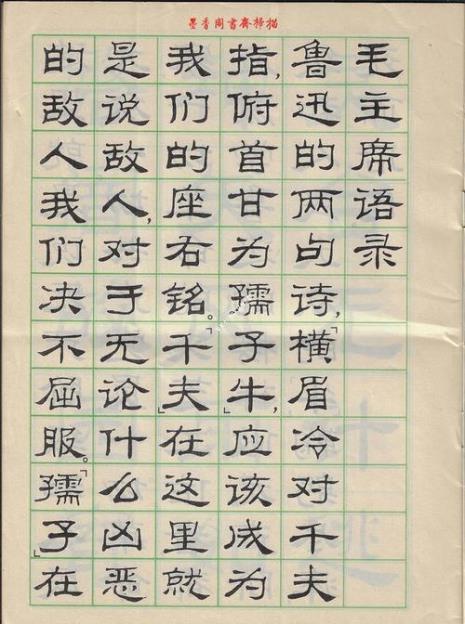 墨香阁書齋掃描
毛主席语录
鲁迅的两句诗，「横眉冷对千夫
指，俯首甘为孺子牛」，应该成为
我们的座右铭。「千夫」在这里就
是说敌人，对于无论什么凶恶
的敌人我们决不屈服。「孺子」在